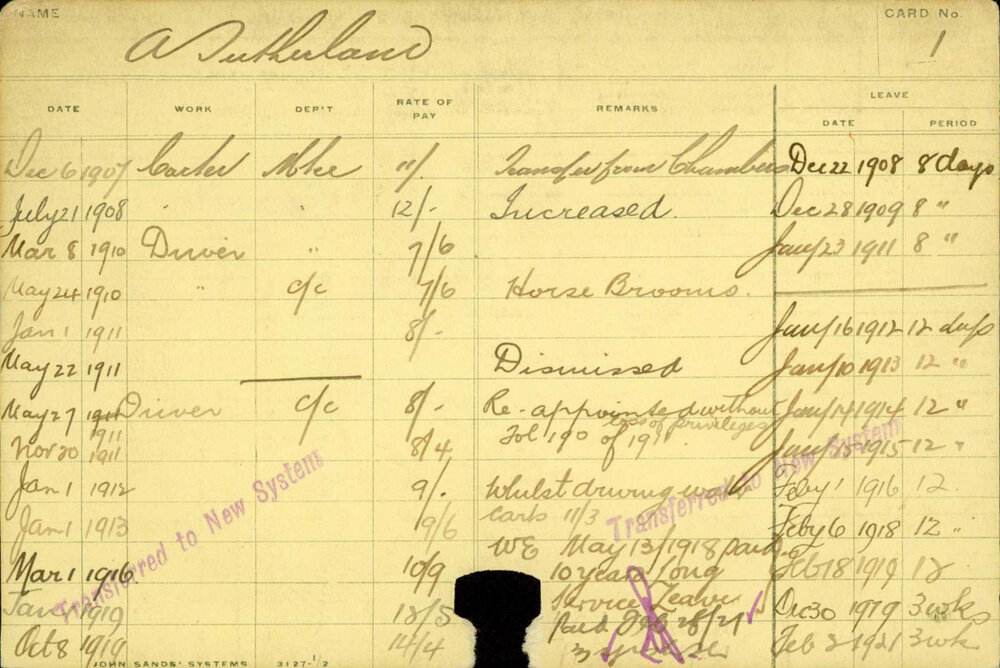 NAME A Sutherland CARD No. 1
DATE WORK DEP'T RATE OF PAY REMARKS LEAVE
DATE PERIOD
Dec 6 1907 Carter 11/. Transfer from Chambers Dec 22 1908 8 days
July 21 1908 " " 12/- Increased. Dec 28 1909 8 "
Mar 8 1910 Driver " 7/6 Jany 23 1911 8 "
May 24 1910 " c/c 7/6 Horse Brooms.
Jan 1 1911 8/- Jany 16 1912 12 days
May 22 1911 Dismissed Jany 10 1913 12 "
May 27 1911 Driver c/c 8/- Re-appointed without Jany 14 1914 12 "
loss of privileges
Nov 30 1911 8/4 Fol 190 of 1911 Jany 1915 12 "
Jan 1 1912 9/. Whilst driving Feby 1 1916 12
Jan 1 1913 9/6 carts 11/3 Feby 6 1918 12 "
WE May 13/1918 paid
Mar 1 1916 10/9 10 years long Feb 18 1919 12
Jan 1 1919 12/5 Service Leave Dec 30 1919 3 wks
Paid Feb 28/21
Oct 8 1919 14/4 3 Feb 2 1921 3 wk
Transferred to New System
Transferred to New System
JOHN SANDS' SYSTEMS 3127-1/2